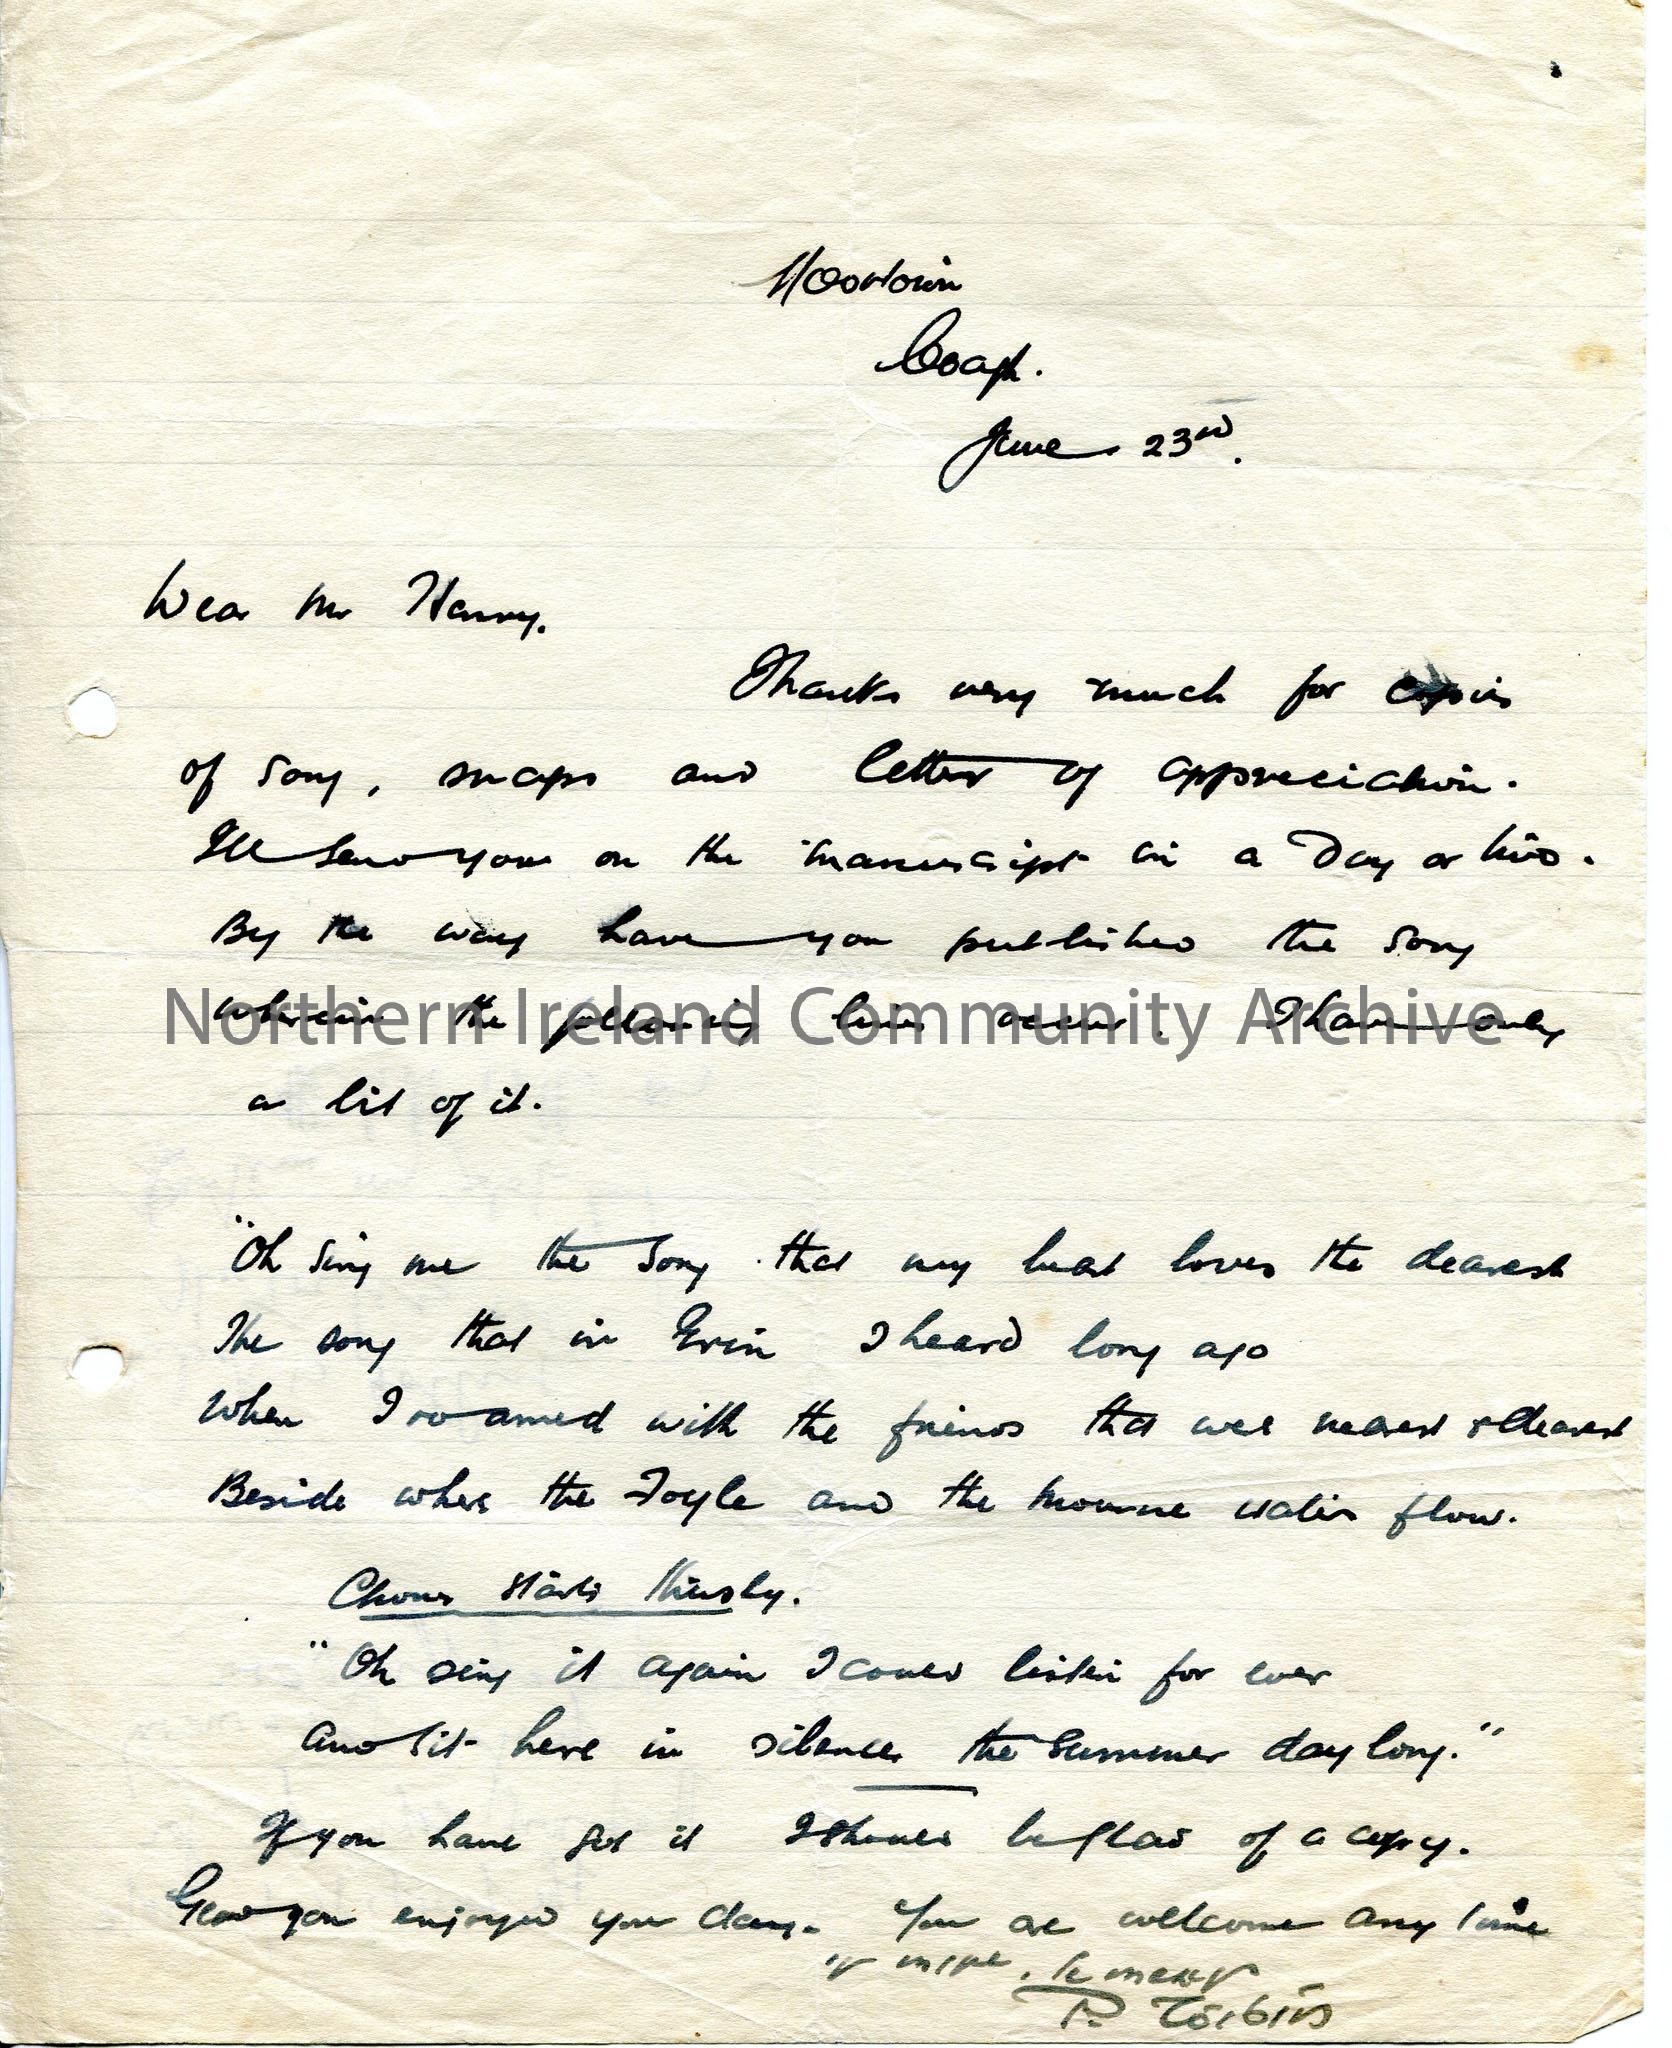 Coagh.
June 23rd.
Dear Mr Henry.
Thanks very much for copies
of song, snaps and letter of appreciation.
I'll send you on the manuscript in a day or two.
By the way have you published the song
wherein the following lines occur. I have only
a bit of it.
Northern Ireland Community Archive
"Oh sing me the song that my heart loves the dearest
The song that in Erin I heard long ago
When I roamed with the friends that were nearest & dearest
Beside where the Foyle and the Mourne waters flow.
Chorus starts thusly.
"Oh sing it again I could listen for ever
And sit here in silence the summer day long."
If you have got it I should be glad of a copy.
Glad you enjoyed your day. You are welcome any time